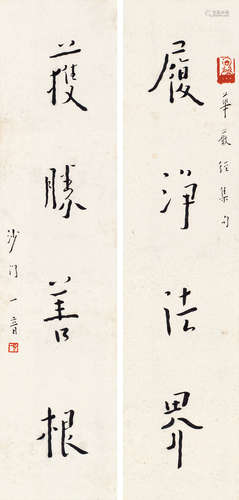 華嚴經集句
履淨法界
獲勝善根
沙門一音